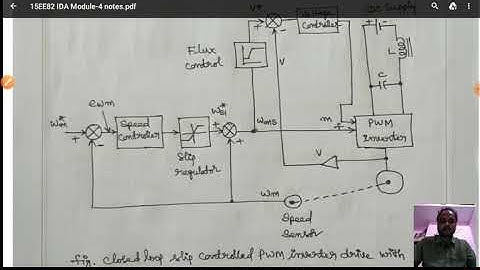 15EE82 IDA Module-4 notes.pdf
V*
DC Supply
Controller
Flux
control
V
L
C
ewm
ω*m
Speed
Controller
ω*sl
Slip
regulator
ωms
m
f
PWM
Inverter
V
ωm
Speed
Sensor
fig. Closed loop slip controlled PWM inverter drive with